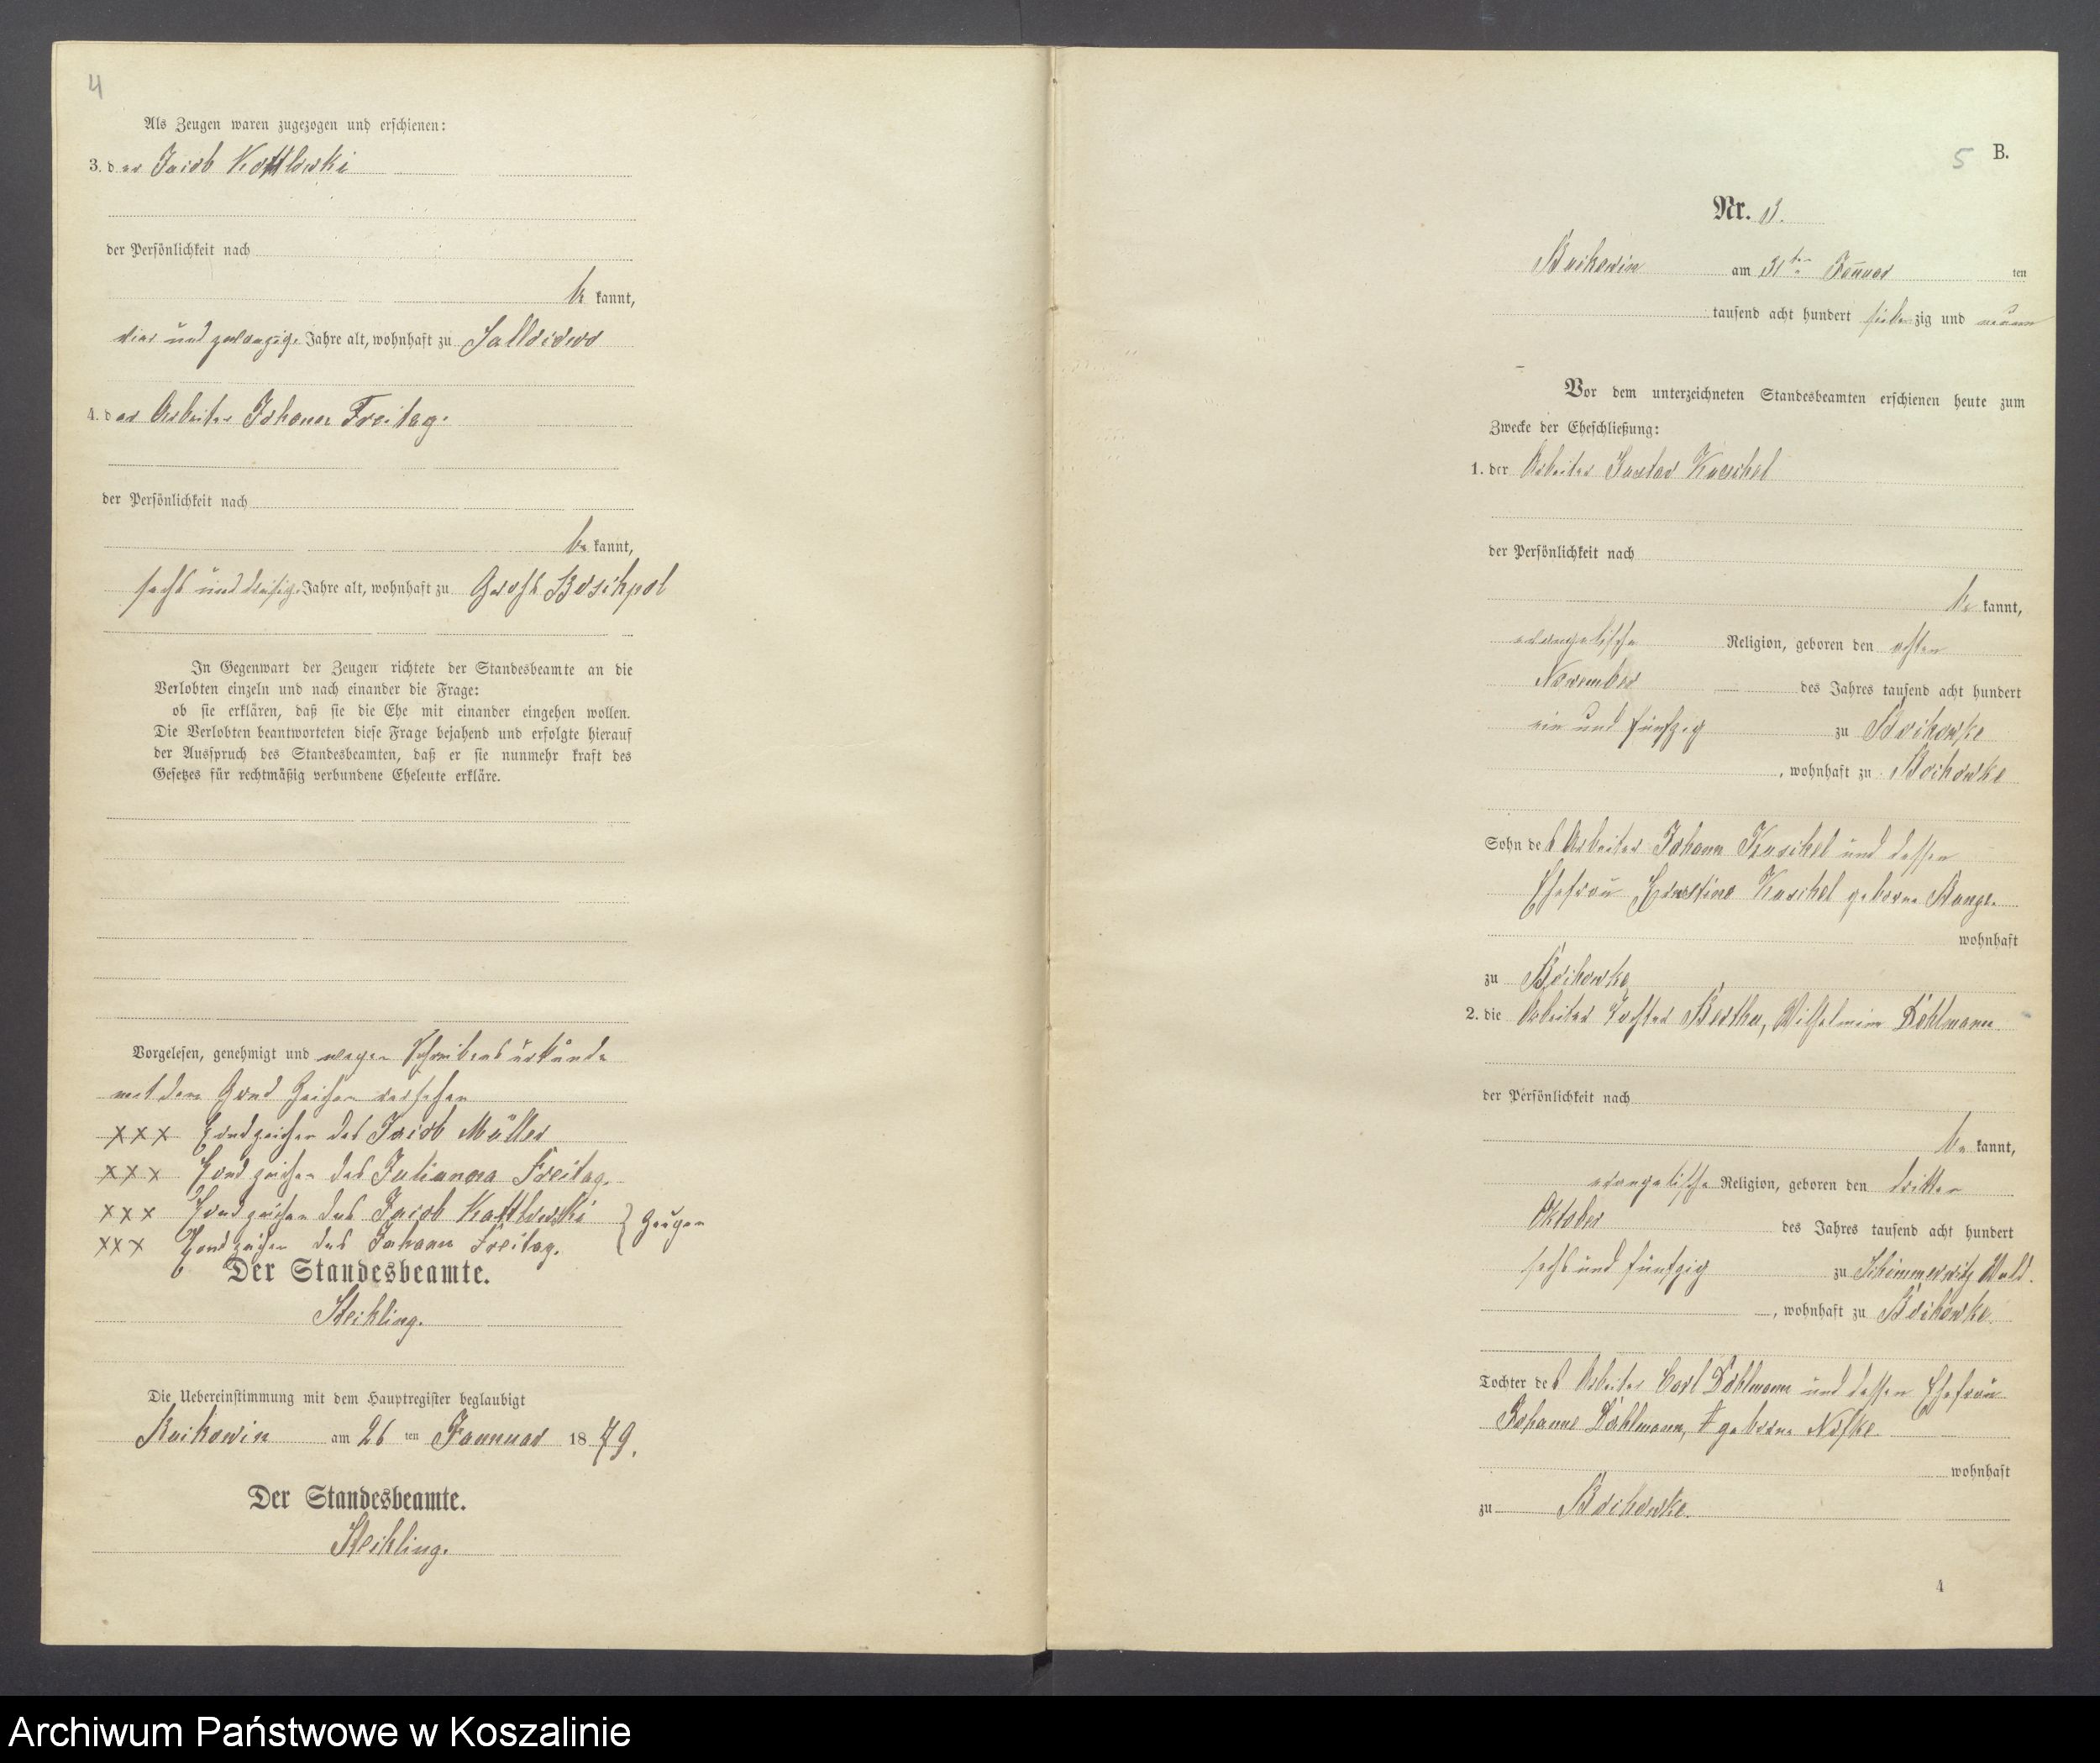 4
Als Zeugen waren zugezogen und erschienen:
3. der Jacob Kottlowski
der Persönlichkeit nach
be kannt,
vier und zwanzig Jahre alt, wohnhaft zu
4. der Arbeiter Johann Freitag.
der Persönlichkeit nach
be kannt,
sechs und dreißig Jahre alt, wohnhaft zu Gross Boschpol
In Gegenwart der Zeugen richtete der Standesbeamte an die
Verlobten einzeln und nach einander die Frage:
ob sie erklären, daß sie die Ehe mit einander eingehen wollen.
Die Verlobten beantworteten diese Frage bejahend und erfolgte hierauf
der Ausspruch des Standesbeamten, daß er sie nunmehr kraft des
Gesetzes für rechtmäßig verbundene Eheleute erkläre.
Vorgelesen, genehmigt und wegen
mit dem Hand Zeichen versehen
xxx Handzeichen des Jacob Müller
xxx Handzeichen der Julianna Freitag.
xxx Handzeichen des Jacob Kottlowski } Zeugen
xxx Handzeichen des Johann Freitag.
Der Standesbeamte.
Die Uebereinstimmung mit dem Hauptregister beglaubigt
Buckowin am 26 ten Januar 18 79.
Der Standesbeamte.
5 B.
Nr. 3.
Buckowin am 31ten Januar ten
tausend acht hundert sieben zig und neun
Vor dem unterzeichneten Standesbeamten erschienen heute zum
Zwecke der Eheschließung:
1. der Arbeiter Gustav Kuschel
der Persönlichkeit nach
be kannt,
evangelische Religion, geboren den
November des Jahres tausend acht hundert
ein und fünfzig zu Bochowke
, wohnhaft zu Bochowke
Sohn des Arbeiter Johann Kuschel und dessen
Ehefrau Ernstine Kuschel geborne
wohnhaft
zu Bochowke
2. die Arbeiter Tochter Bertha, Wilhelmine Dahlmann
der Persönlichkeit nach
be kannt,
evangelische Religion, geboren den dritten
Oktober des Jahres tausend acht hundert
sechs und fünfzig zu Schimmerwitz Wald.
, wohnhaft zu Bochowke.
Tochter des Arbeiter Carl Dahlmann und dessen Ehefrau
Johanne Dahlmann, geborne
wohnhaft
zu Bochowke.
4
Archiwum Państwowe w Koszalinie